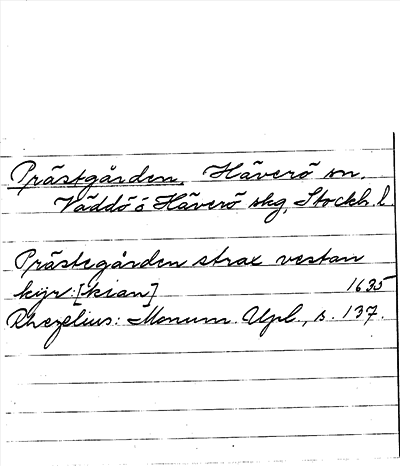 Prästgården, Häverö sn.
Väddö ó Häverö skg, Stockh. l.
Prästegården strax vestan
kyr:[kian] 1635
Rhezelius: Monum. Upl., s. 137.